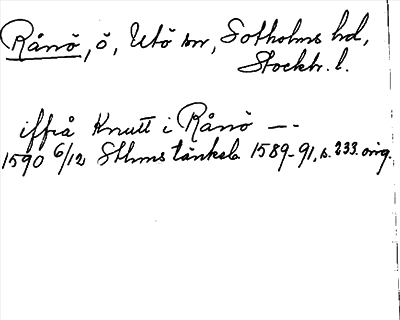 Rånö, ö, Utö sn, Sotholms hd,
Stockh. l.
iffrå Knutt i Rånö —-
1590 6/12 Sthms tänkeb. 1589-91, s. 233. orig.